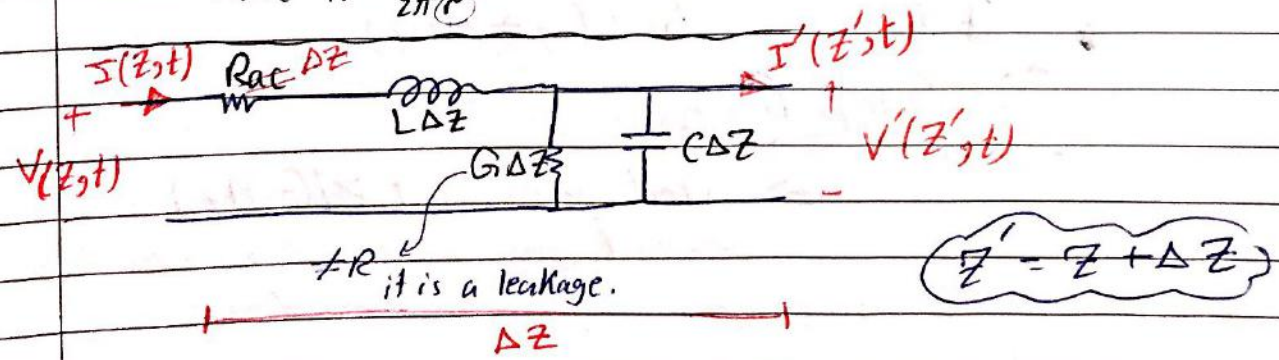 2π r
I(Z,t) Rac ΔZ I'(Z',t)
+ LΔZ +
V(Z,t) GΔZ CΔZ V'(Z',t)
-
Z' = Z + ΔZ
≠R it is a leakage.
ΔZ